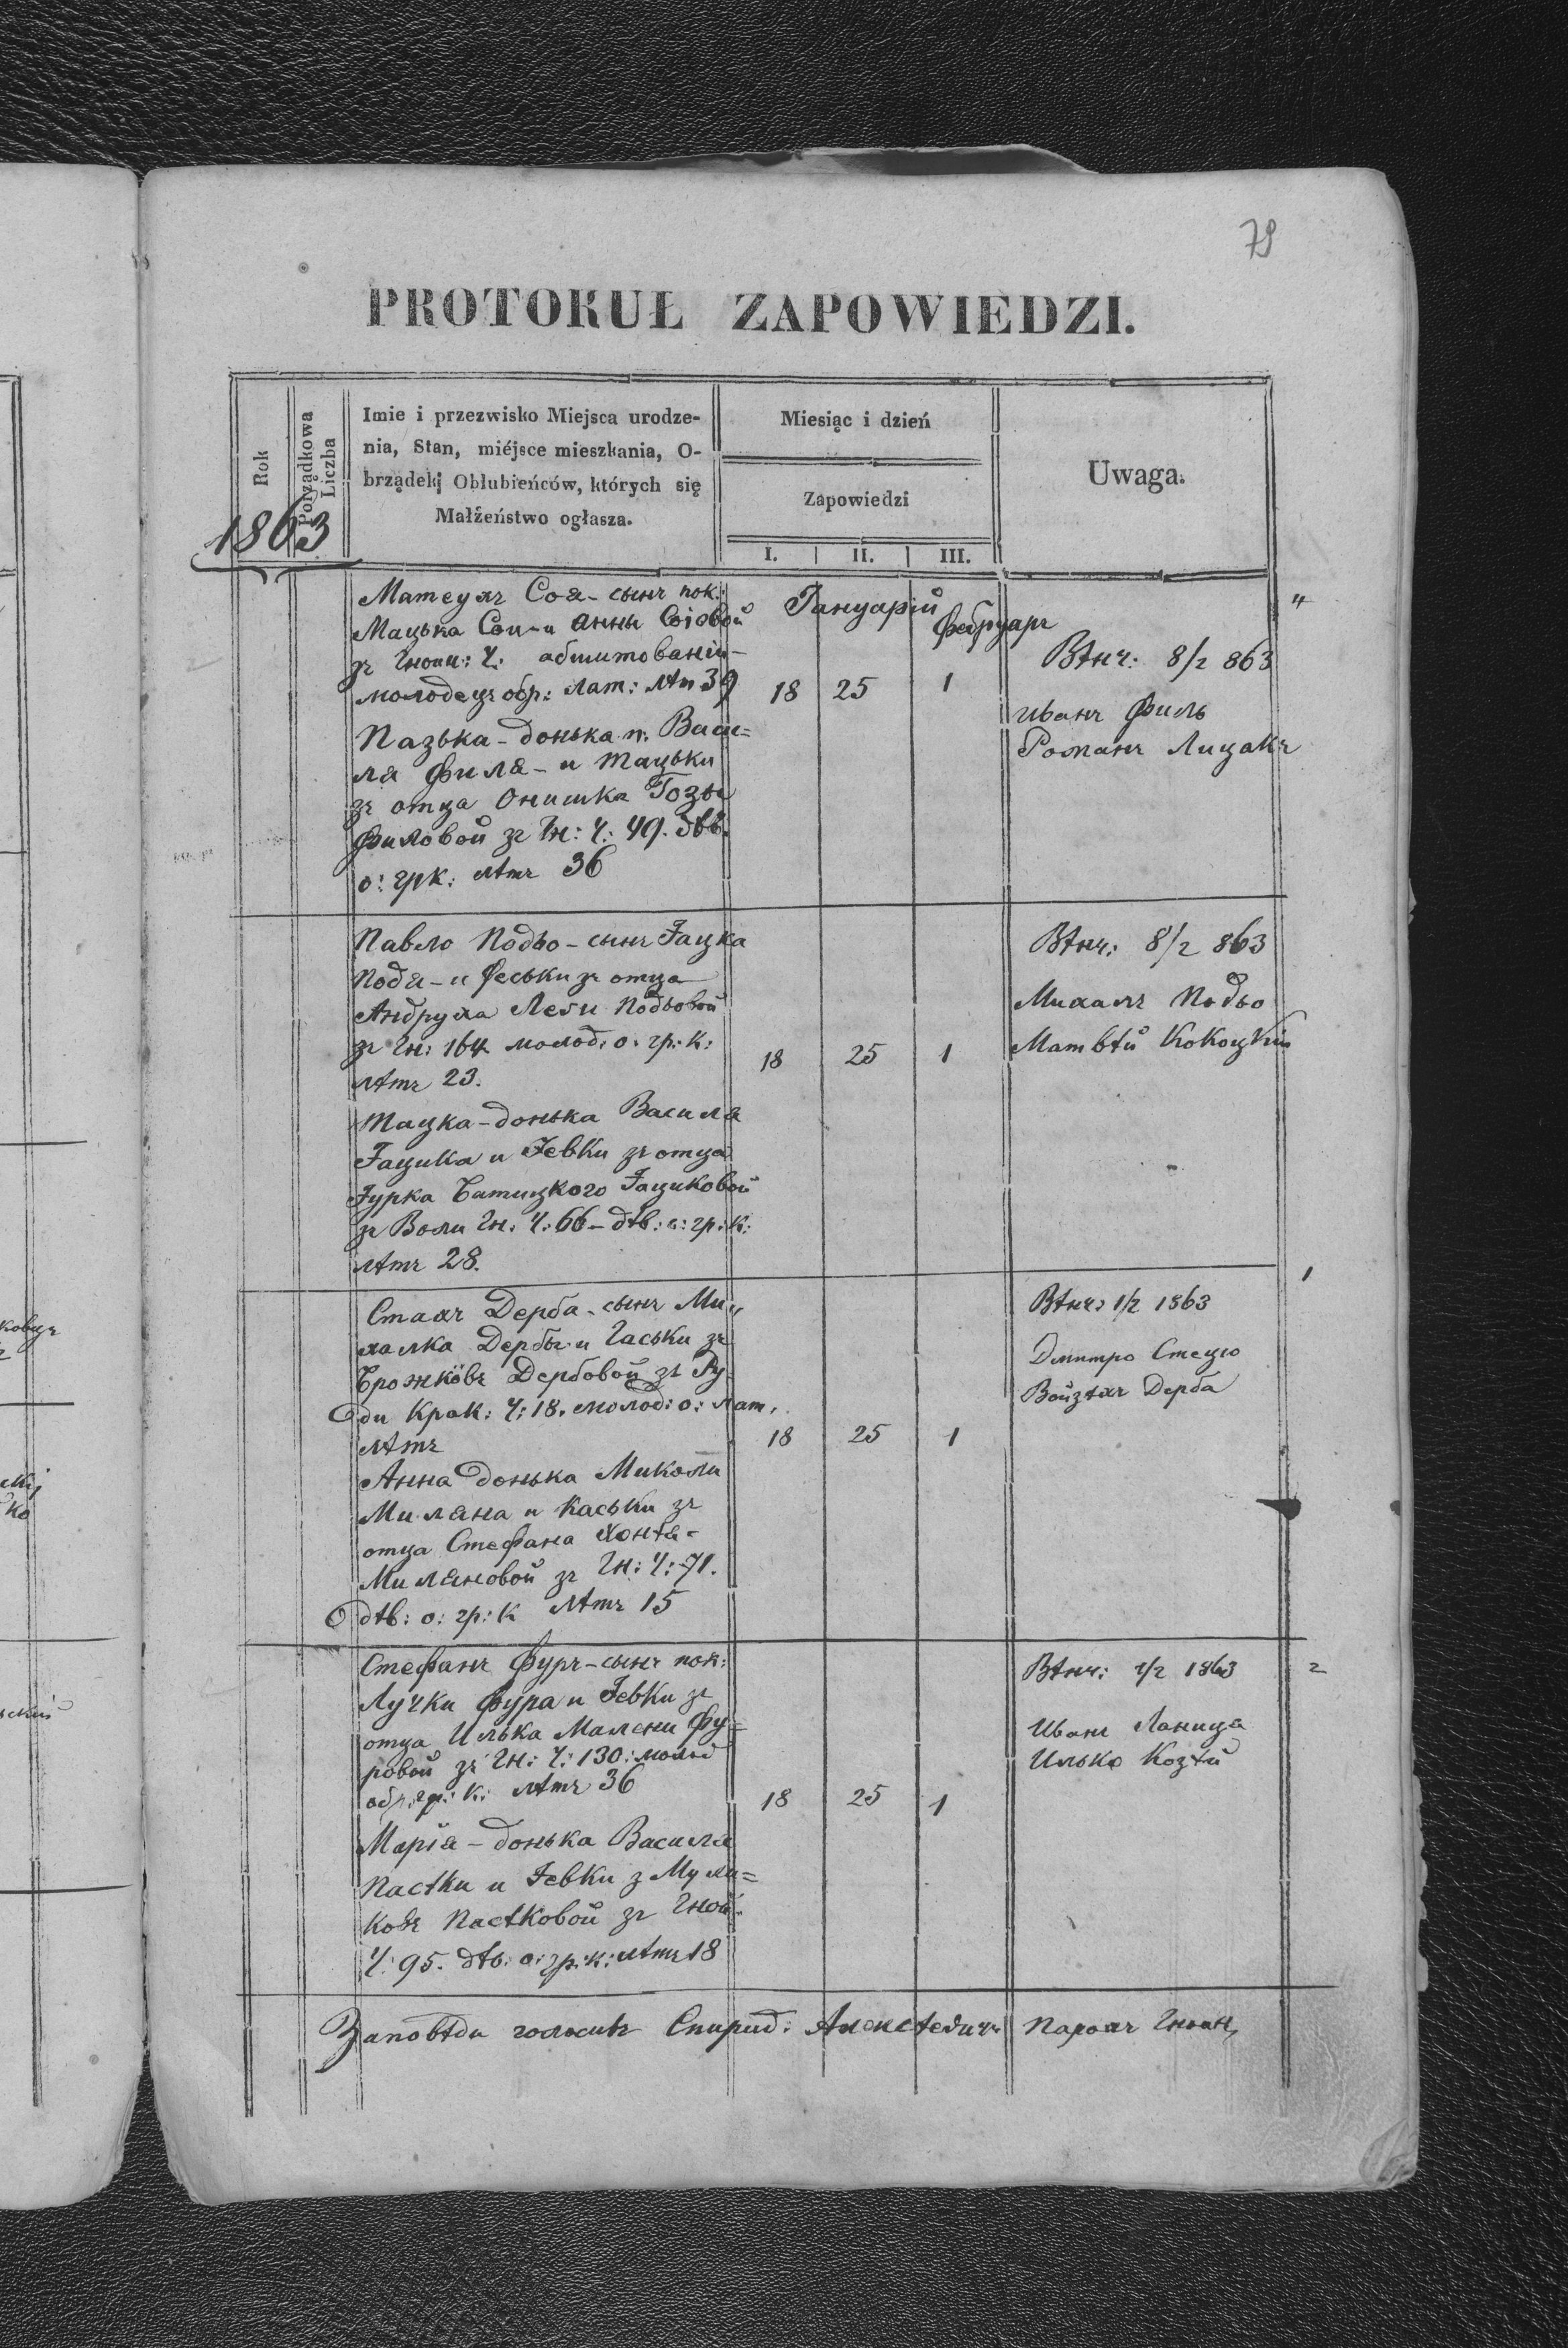 79
PROTOKUŁ ZAPOWIEDZI.
Rok
Porządkowa Liczba
Imie i przezwisko Miejsca urodze-
nia, Stan, miéjsce mieszkania, O-
brządek i Oblubieńców, których się
Małżeństwo ogłasza.
Miesiąc i dzień
Zapowiedzi
I. II. III.
Uwaga.
1863
Матеушъ Соя - сынъ пок:
Мацька Сои и Анны Соіовой
зъ Гнойн: Ч: абшитованій
молодецъ обр: лат: лѣтъ 39
Пазька - донька п: Васи=
ля Филя - и Тацьки
зъ отца Онишка Гозы
Филовой зъ Гн: Ч: 49. дѣв.
о: грк: лѣтъ 36
Януарій Фебруаръ
18 25 1
Вѣнч: 8/2 863
Иванъ Филь
Романъ Лицакъ
"
Павло Подьо - сынъ Яцка
Подя - и Феськи зъ отца
Андруха Леги Подьовой
зъ Гн: 164 молод: о: гр: к:
лѣтъ 23.
Тацка - донька Василя
Яцика и Евки зъ отца
Юрка Батицкого Яциковой
зъ Воли Гн: Ч: 66 - дѣв: о: гр: к:
лѣтъ 28.
18 25 1
Вѣнч: 8/2 863
Михалъ Подьо
Матвѣй Кокоцкій
Стахъ Дерба - сынъ Ми
халка Дербы и Гаськи зъ
Брожкôвъ Дербовой зъ Ру
ди Крак: Ч: 18. молод: о: лат.
лѣтъ
Анна донька Миколи
Миляна и Каськи зъ
отца Стефана Хонтя-
Миляновой зъ Гн: Ч: 71.
дѣв: о: гр: к лѣтъ 15
18 25 1
Вѣнч: 1/2 1863
Дмитро Стецю
Войтѣхъ Дерба
1
Стефанъ Фуръ - сынъ пок:
Лучки Фура и Евки зъ
отца Илька Малени Фу=
ровой зъ Гн: Ч: 130: молод
обр: гр: к: лѣтъ 36
Марія - донька Василя
Пасѣки и Евки з Мули=
ковъ Пасѣковой зъ Гной:
Ч: 95. дѣв: о: гр: к: лѣтъ 18
18 25 1
Вѣнч: 1/2 1863
Иванъ Ланица
Илько Козѣй
2
Заповѣди голосивъ Спирид: Алексѣевичъ Парохъ Гноян,